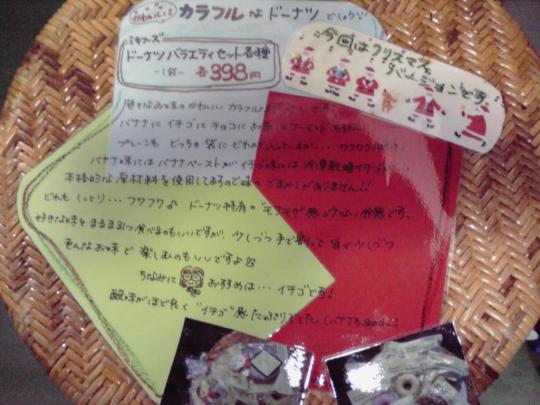 かわいい カラフルなドーナツでしょ♡
ミキフーズ
ドーナツ バラエティセット各種
-1袋- 各398円
今回はクリスマス
バージョンです♪
色々なお味のかわいい カラフル
バナナにイチゴにチョコに
プレーンも どっちの袋にどれが入っ
バナナ味にはバナナペーストが イチゴ味には 冷凍乾燥イチゴ
本格的な原材料を使用してますので味のごまかしがありません!!
どれも しっとり…フワフワ♪ ドーナツ特有の"モサモサ感"の少ない
好きな味をまるまる1つ食べるのもいいですが、少しづつ手で割って 皆で少しづつ
色んなお味で 楽しむのもいいですよ
ちなみに おすすめは…イチゴです!
酸味がほど良く "イチゴ"感 たっぷりでした。(バナナも